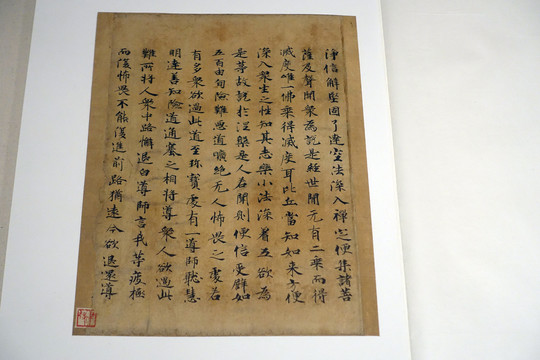 淨信解堅固了達空法深入禪定便集諸菩
薩及聲聞衆為說是經世間无有二乗而得
滅度唯一佛乗得滅度耳比丘當知如来方便
深入衆生之性知其志樂小法深着五欲為
是等故說於涅槃是人若聞則便信受譬如
五百由旬險難惡道曠絶无人怖畏之處若
有多衆欲過此道至珎寳處有一導師聡慧
明達善知險道通塞之相將導衆人欲過此
難所將人衆中路懈退白導師言我等疲極
而復怖畏不能復進前路猶遠今欲退還導